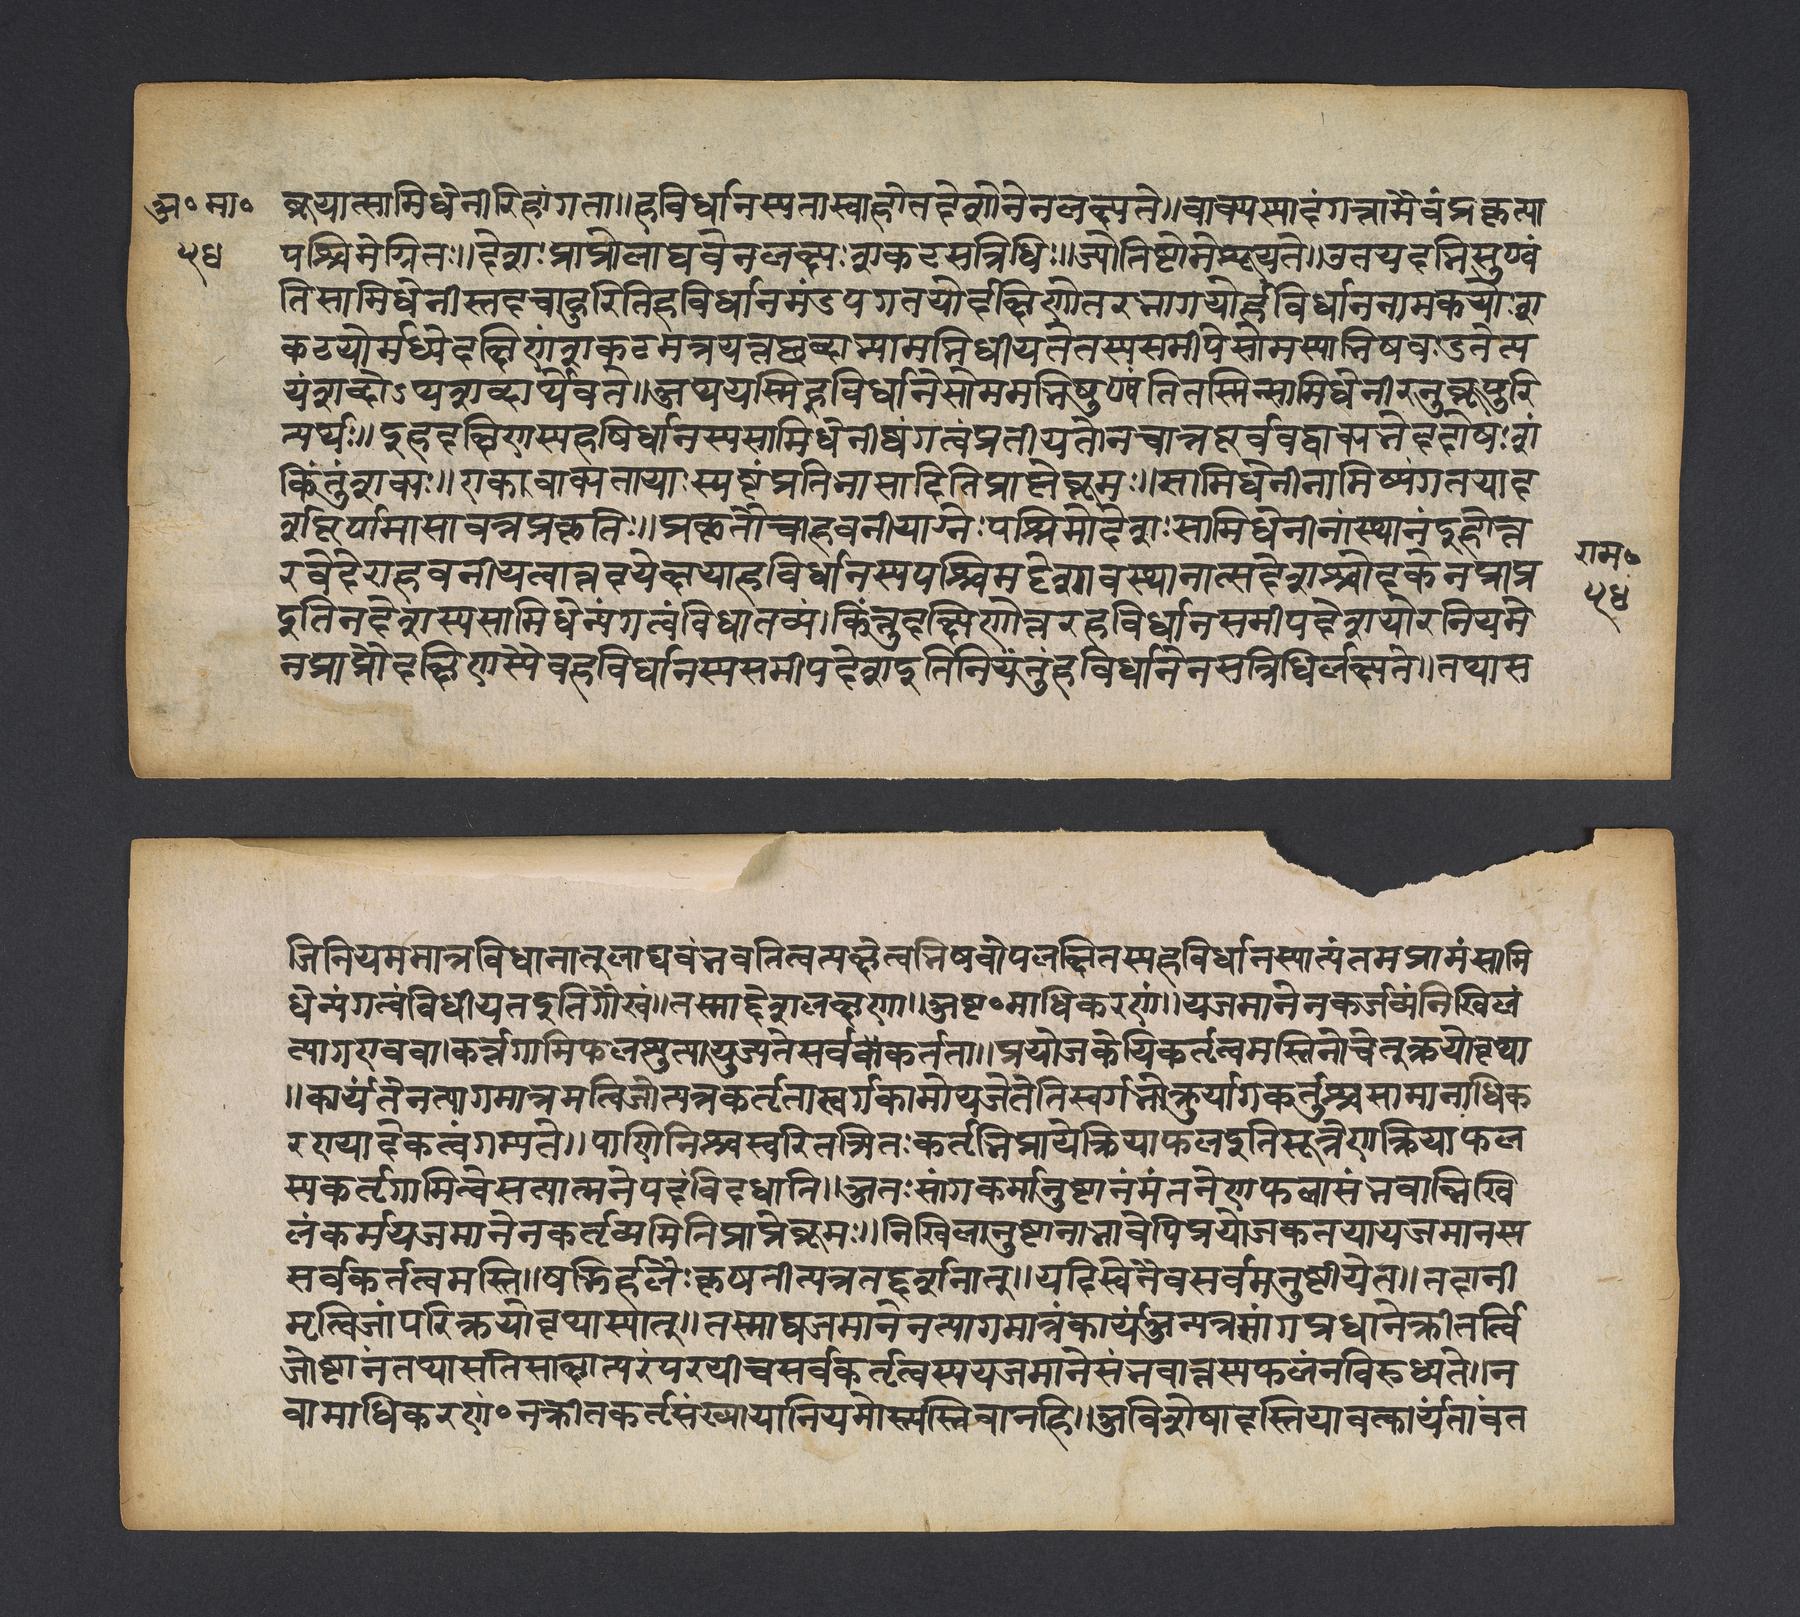 अ॰ मा॰
५४
ब्रूयात्सामिधेनीरिहांगता॥हविर्धानस्यतास्वाहोतद्देशोनेनलक्ष्यते॥वाक्यस्याद्दंगन्नामैवंप्रकृत्या
पश्चिमेग्नितः॥देशःप्राप्तोलाघवेनलक्ष्यःशकटसन्निधिः॥ज्योतिष्टोमेश्रूयते॥उतयदभिसुण्वं
तिसामिधेनीस्तदन्वाहुरितिहविर्धानमंडपगतयोर्दक्षिणोतरभागयोर्हविर्धाननामकयोःश
कटयोर्मध्येदक्षिणंशकटमत्रयत्तच्छब्दाभ्यामभिधीयतेतस्यसमीपेसोमस्याभिषवःउतेत्य
यंशब्दोऽप्यशब्दार्थेवर्तते॥अप्ययस्मिन्हविर्धानेसोममभिषुण्वंतितस्मिन्सामिधेनीरनुब्रूयुरि
त्यर्थः॥इहदक्षिणस्यहविर्धानस्यसामिधेनीष्वंगत्वंप्रतीयतेनचान्नपूर्ववद्वाक्यभेददोषःशं
किंतुंशक्यः॥एकवाक्यतायाःस्पष्टंप्रतिभासादितिप्राप्तेब्रूमः॥सामिधेनीनामिष्यंगतयाद
र्शपूर्णमासावत्रप्रकृतिः॥प्रकृतौचाहवनीयाग्नेःपश्चिमोदेशःसामिधेनीनांस्थानंइहोत्त
रवेदेराहवनीयत्वात्तदपेक्षयाहविर्धानस्यपश्चिमदेशावस्थानात्सदेशश्चोदकेनप्राप्त
इतिनदेशस्यसामिधेन्यंगत्वंविधातव्यं।किंतुदक्षिणोत्तरहविर्धानसमीपदेशयोरनियमे
नप्राप्तौदक्षिणस्यैवहविर्धानस्यसमीपदेशइतिनियंतुंहविर्धानेनसन्निधिर्लक्ष्यते॥तथास
राम॰
५४
तिनियममात्रविधानातुलाघवंभवतित्वत्पक्षेत्वभिषवोपलक्षितस्यहविर्धानस्यात्यंतमप्राप्तंसामि
धेन्यंगत्वंविधीयतइतिगौरवं॥तस्माद्देशलक्षणा॥अष्ट॰माधिकरणं॥यजमानेनकर्तव्यंनिखिलं
त्यागएववा।कर्तृगामिफलश्रुत्यायुज्यतेसर्वकर्तृता॥प्रयोजकेपिकर्तृत्वमस्तिनोचेत्क्रयोवृथा
॥कार्यंतेनत्यागमात्रमृत्विजोत्यत्रकर्तृतास्वर्गकामोयजेतेतिस्वर्गभोक्तुर्यागकर्तुश्चसामानाधिक
रण्यादेकत्वंगम्यते॥पाणिनिश्चस्वरितञितःकर्त्रभिप्रायेक्रियाफलइतिसूत्रेणक्रियाफल
स्यकर्तृगामित्वेसत्यात्मनेपदंविदधाति॥अतःसांगकर्मानुष्टानमंतरेणफलासंभवान्निखि
लंकर्मयजमानेनकर्तृव्यमितिप्राप्तेब्रूमः॥निखिलानुष्टानाभावेपिप्रयोजकतयायजमानस
सर्वकर्तृत्वमस्ति॥षभिर्हलैःकृषतीत्यत्रतद्दर्शनात्॥यदिस्वेनैवसर्वमनुष्टीयेत॥तदानी
मृत्विजांपरिक्रयोवृथास्यात्॥तस्माद्यजमानेनत्यागमात्रंकार्यंअन्यत्रसांगप्रधानेक्रीतर्त्वि
जोष्टानंतथासतिसाक्षात्परंपरयाचसर्वकर्तृत्वस्ययजमानेसंभवात्तस्यफलंनविरुध्यते॥न
वामाधिकरणं॰नक्रीतकर्तृसंख्यायानियमोस्त्यस्तिवानहि॥अविशेषादस्तियावत्कार्यंतावंत